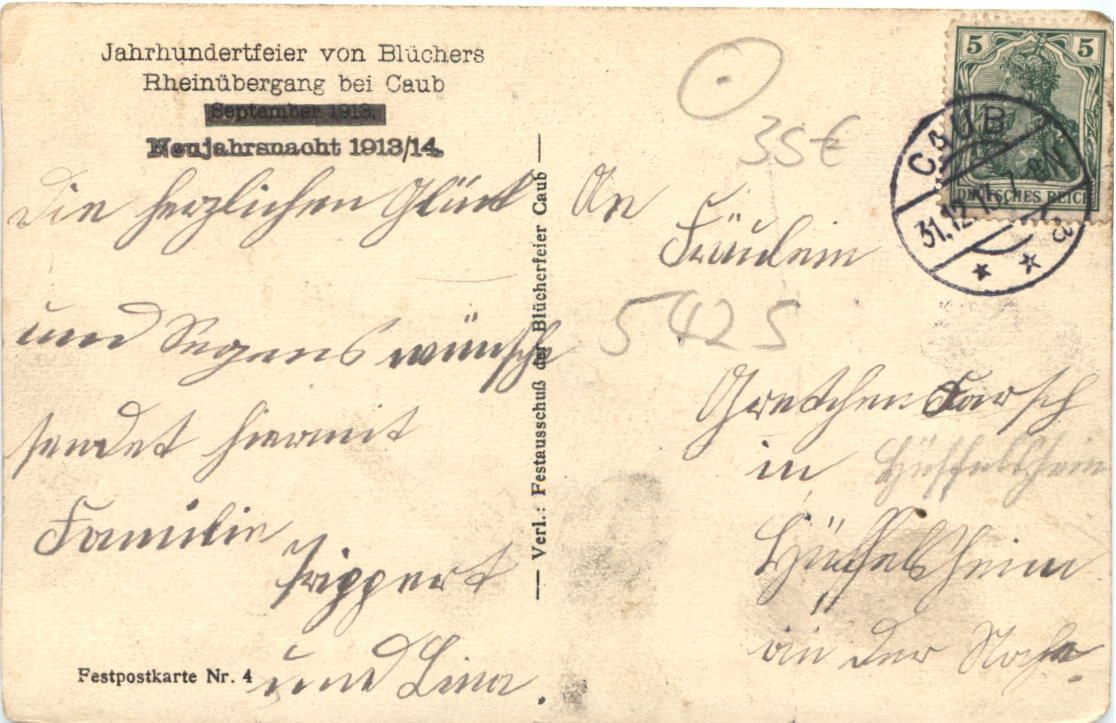 Jahrhundertfeier von Blüchers
Rheinübergang bei Caub
September 1913.
Neujahrsnacht 1913/14.
Die herzlichen Glück
und Segens wünsche
sendet hiermit
Familie
und Lina.
Festpostkarte Nr. 4
— Verl.: Festausschuß der Blücherfeier Caub —
35€
5 5
DEUTSCHES REICH
CAUB
31.12.
An
Fräulein
5425
Gretchen
in Hüffelsheim
Hüffelsheim
an der Nahe.